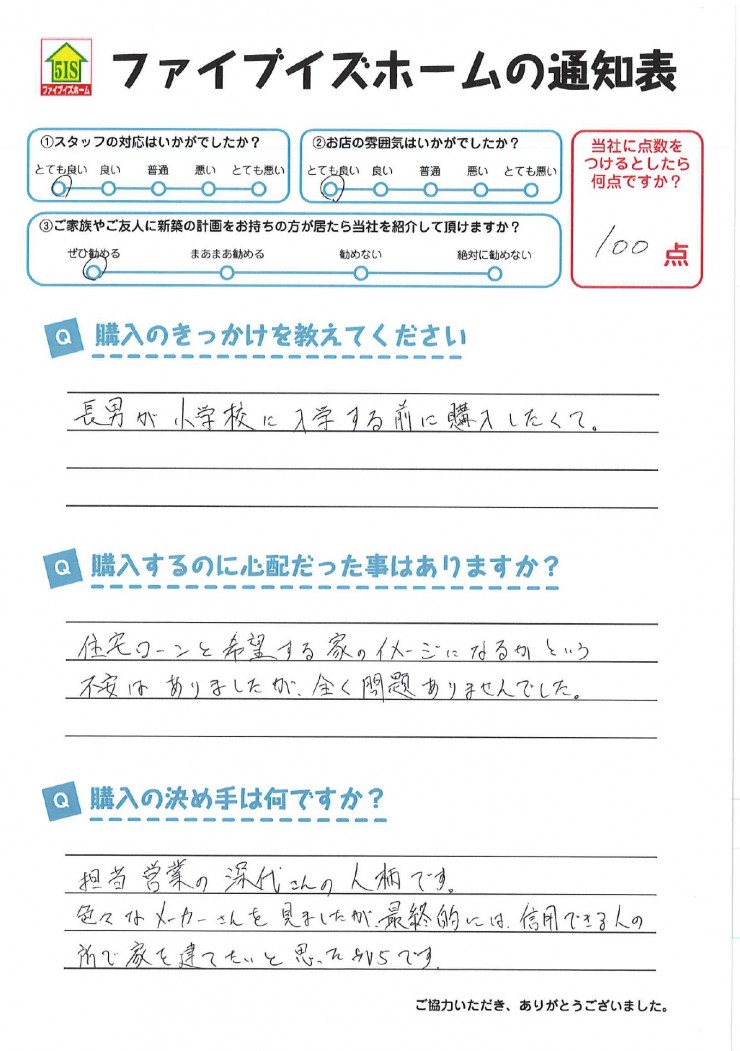 5IS
ファイブイズホーム
ファイブイズホームの通知表
①スタッフの対応はいかがでしたか？
とても良い 良い 普通 悪い とても悪い
②お店の雰囲気はいかがでしたか？
とても良い 良い 普通 悪い とても悪い
③ご家族やご友人に新築の計画をお持ちの方が居たら当社を紹介して頂けますか？
ぜひ勧める まあまあ勧める 勧めない 絶対に勧めない
当社に点数を
つけるとしたら
何点ですか？
100 点
Q 購入のきっかけを教えてください
長男が小学校に入学する前に購入したくて。
Q 購入するのに心配だった事はありますか？
住宅ローンと希望する家のイメージになるかという
不安はありましたが、全く問題ありませんでした。
Q 購入の決め手は何ですか？
担当営業の深代さんの人柄です。
色々なメーカーさんを見ましたが、最終的には、信用できる人の
所で家を建てたいと思ったからです。
ご協力いただき、ありがとうございました。